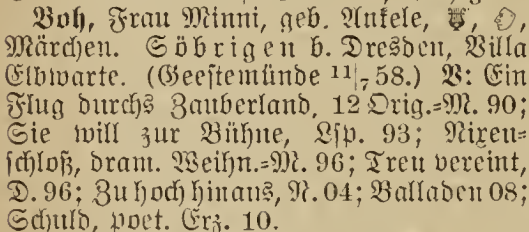 Voß, Frau Minni, geb. Ankele,
Märchen. Söbrigen b. Dresden, Villa
Elbwarte. (Geestemünde 11/7 58.) V: Ein
Flug durchs Zauberland, 12 Orig.=M. 90;
Sie will zur Bühne, Lsp. 93; Nixen=
schloß, dram. Weihn.=M. 96; Treu vereint,
D. 96; Zu hoch hinaus, N. 04; Balladen 08;
Schuld, poet. Erz. 10.